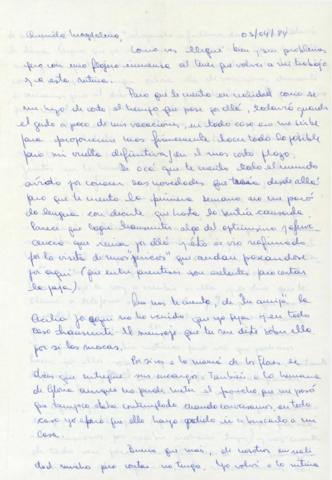 Querida Magdalena, 03/04/84
Como ves llegué bien y sin problemas
pero con una flojera inmensa al tener que volver a mi trabajo
y a esta rutina.
Pero que te cuento en realidad como se
me hizo de corto el tiempo que pasé por allá, todavía cuando
el gusto a poco de mis vacaciones, en todo caso me sirvió
para proponerme más firmemente hacer todo lo posible
para mi vuelta definitiva, en el más corto plazo.
Por acá que te cuento todo el mundo
ávido por conocer las novedades que traía desde allá
pero que te cuento la primera semana no me paró
la lengua con decirte que hasta la sentía cansada
Parece que logré transmitir algo del optimismo y efer-
cencia que reina por allá y esto se vio reforzado
por la visita de unos que andan paseándose
por aquí (que entre paréntesis son excelentes pro cortar
la paja).
Pero no te cuento, de "tu amiga" la
Cecilia yo aquí no ha venido que yo sepa y en todo
caso el mensaje que tu me diste sobre ella
por si las moscas.
a la mamá de las flores le
dices que entregué su encargo. También a la hermana
de Gloria aunque no pude meter el poncho que me pasó
que tampoco estaba contemplado cuando conversamos, en todo
caso yo espero que ella haya podido ir a buscarlo a su
casa.
Bueno que más, de nosotros en reali-
dad mucho que contar no tengo. Yo volví a la rutina